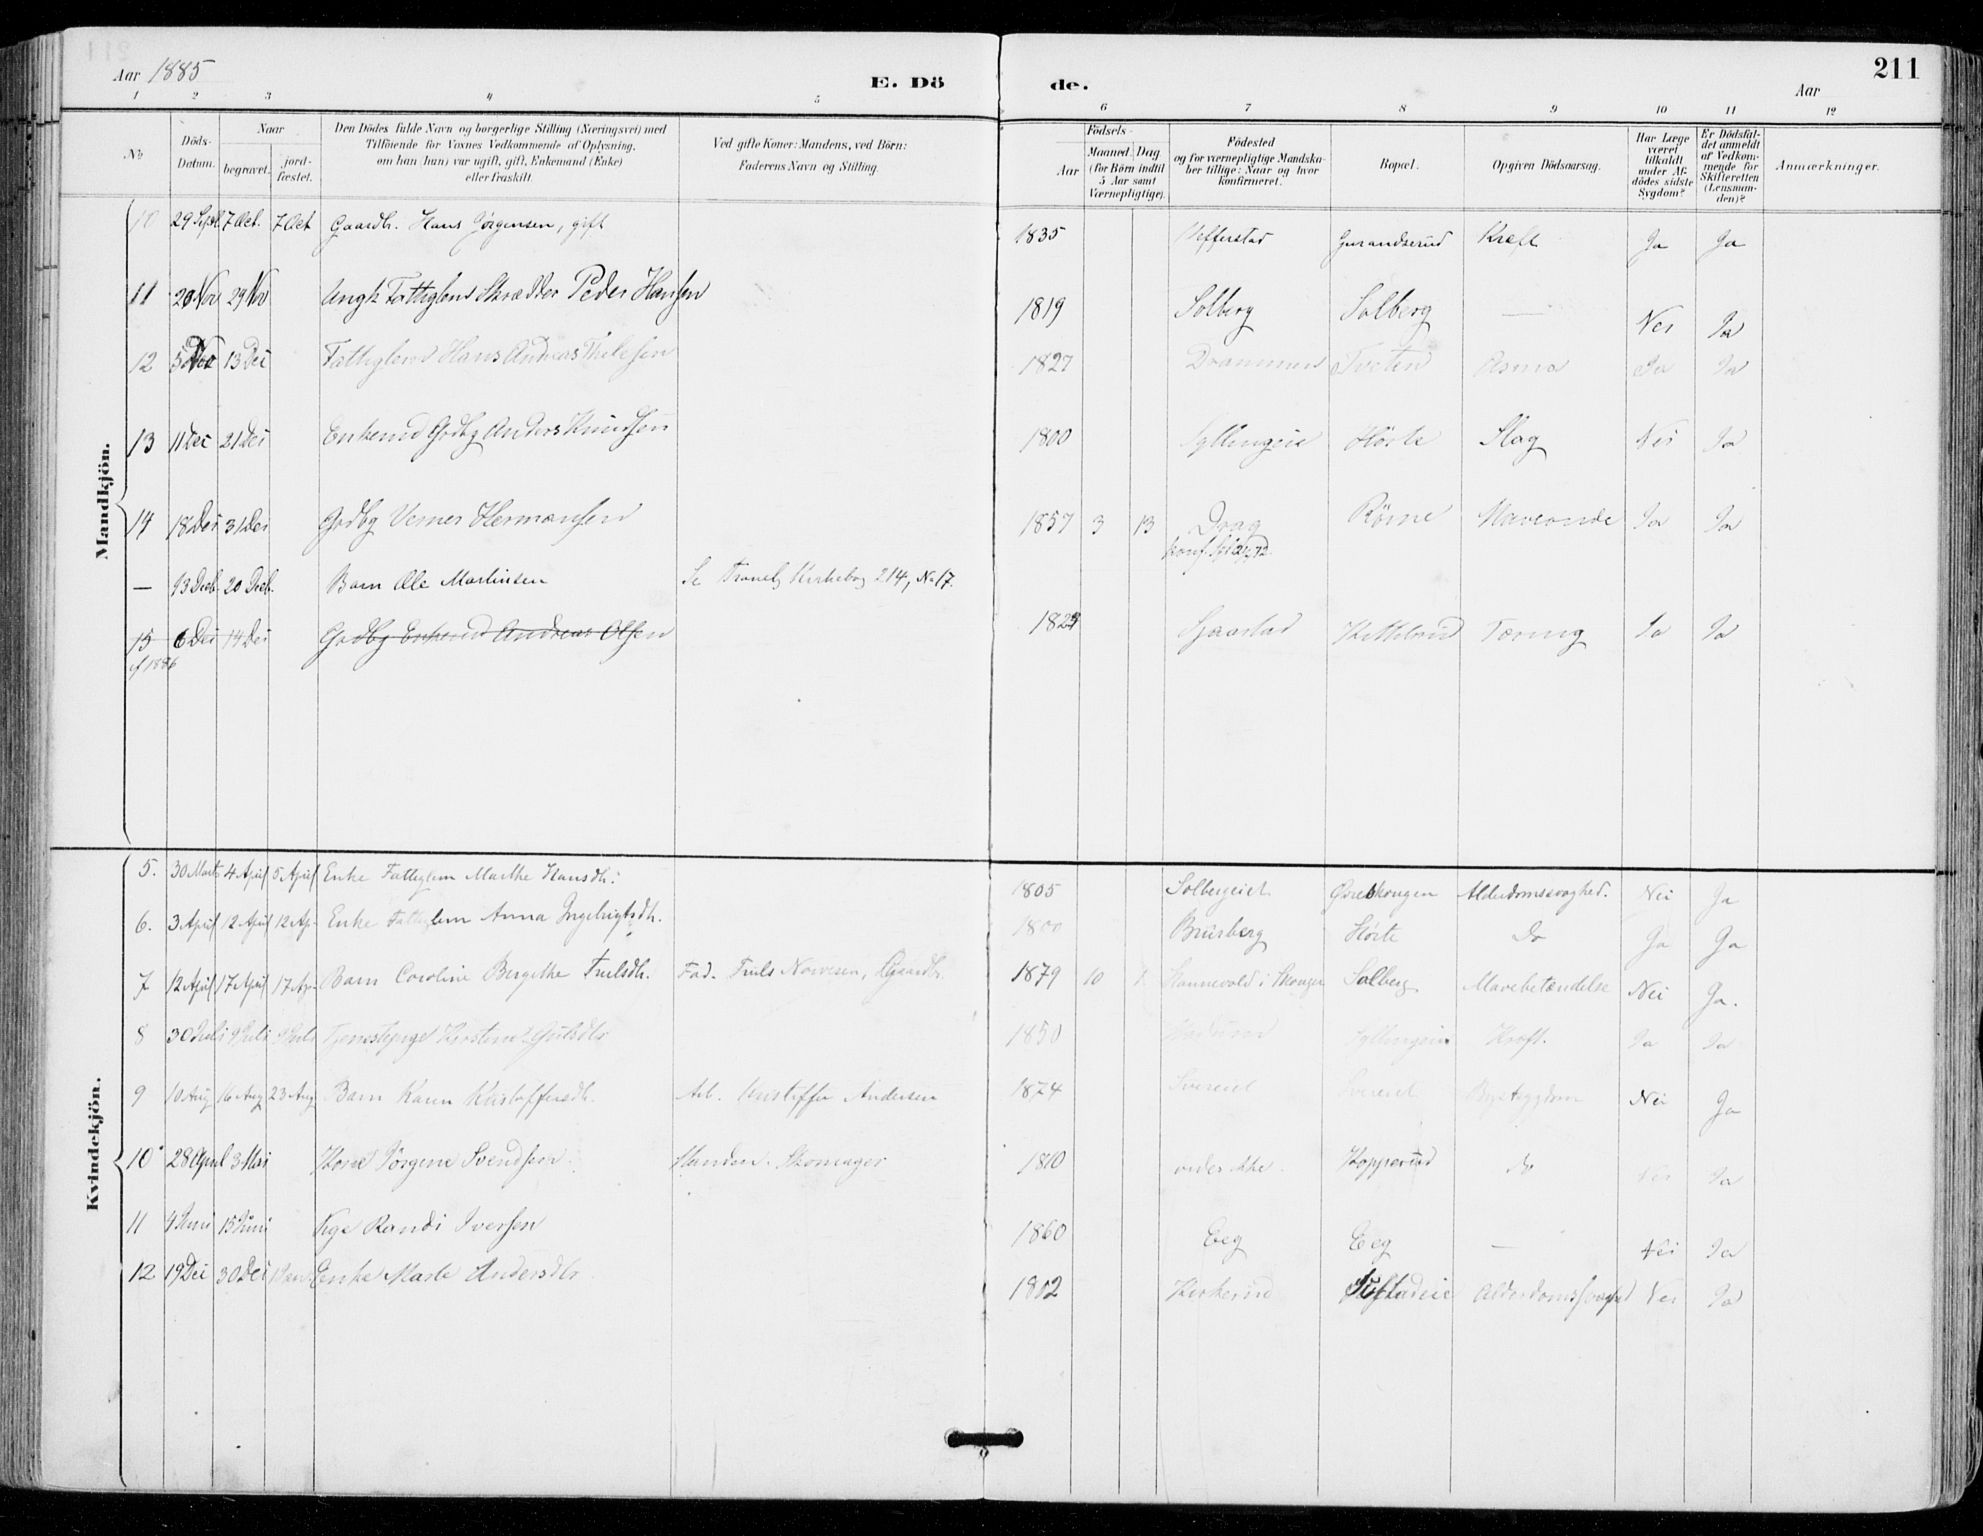 Aar 1885 E. Dö de. Aar 211
1 2 3 4 5 6 7 8 9 10 11 12
No
Döds-Datum.
Naar
begravet.
jord-fæstet.
Den Dödes fulde Navn og borgerlige Stilling (Næringsvei) med
Tilföiende for Voxnes Vedkommende af Oplysning,
om han (hun) var ugift, gift, Enkemand (Enke)
eller fraskilt.
Ved gifte Koner: Mandens, ved Börn:
Faderens Navn og Stilling.
Födsels-
Aar
Maaned. Dag
(for Börn indtil
5 Aar samt
Værnepligtige).
Födested
og for værnepligtige Mandska-
ber tillige: Naar og hvor
konfirmeret.
Bopæl.
Opgiven Dödsaarsag.
Har Læge
været
tilkaldt
under Af-
dödes sidste
Sygdom?
Er Dödsfal-
det anmeldt
af Vedkom-
mende for
Skifteretten
(Lensman-
den)?
Anmærkninger.
Mandkjön.
10 29 Sept. 7 Oct. 7 Oct Gaardb. Hans Jørgensen, gift 1835 Gurandserud Kræft Ja Ja
11 20 Nov 29 Nov Ungk Fattiglem Skrædder Peder Hansen 1819 Solberg Solberg — Nei Ja
12 5 Dec 13 Dec Fattiglem Hans Andreas Thilesen 1827 Drammen Tveten Asma Ja Ja
13 11 Dec 21 Dec Enkemd Gdbg Anders Knudsen 1800 Syllingeie Hörte Slag Nei Ja
14 18 Dec 31 Dec Gdbg Verner Hermansen 1857 3 13 Drag Röme Maveonde Ja Ja
— 13 Decb. 20 Decb. Barn Ole Martinsen Se Tranby Kirkebog 214, No 17.
15 6 Dec 14 Dec Gdbg Enkemd Andreas Olsen Sjaastad Tæring Ja Ja
cf 1886
Kvindekjön.
5. 30 Marts 4 April 5 April Enke Fattiglem Marthe Hansdtr. 1805 Solbergeiet Øvreskougen Alderdomssvaghed. Nei Ja
6. 3 April 12 April 12 Ap. Enke Fattiglem Anna Ingebrigtsdtr. 1800 Brusberg Hörte Do Ja Ja
7 12 April 17 April 17 Apr. Barn Caroline Bergithe Trulsdtr. Fad. Truls Narvesen, Gaardb. 1879 10 Hannevold i Skouger Solberg Mavebetændelse Nei Ja.
8 30 Juli 9 Juli Tjenestepige Kirstine Gulsdtr 1850 Syllingeie Kræft. Ja Ja
9 10 Aug 16 Aug 23 Aug Barn Karen Kristoffersdtr. Arb. Kristoffer Andersen 1874 Svereiet Svereiet Nei Ja
10 28 April 3 Mai Kone Jørgine Svendsen Manden Skomager 1810 Kopperud do Nei Ja
11 4 Juni 15 Juni Pge Randi Iversen 1860 Eeg Eeg — Nei Ja
12 19 Dec 30 Dec Enke Marte Andersdtr 1802 Kirkerud Alderdomssvaghed Nei Ja